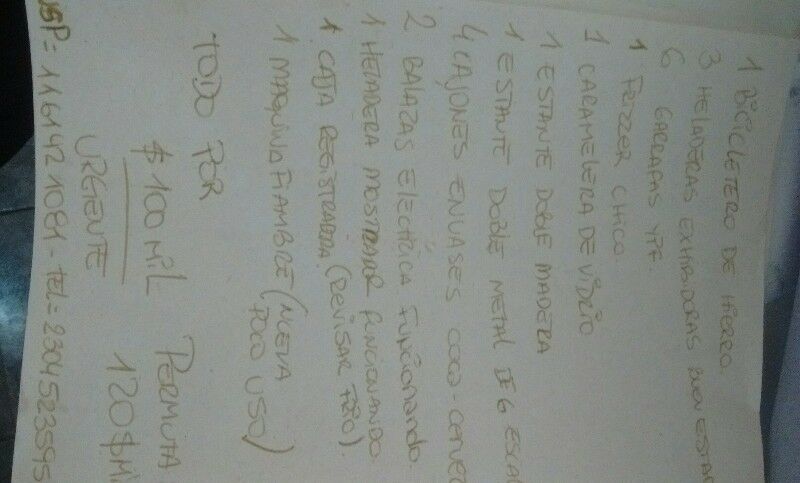 1 BICICLETERO DE HIERRO
3 HELADERAS EXHIBIDORAS BUEN ESTAD
6 GARRAFAS YPF.
1 FRIZZER CHICO.
1 CARAMELERA DE VIDRIO
1 ESTANTE DOBLE MADERA
1 ESTANTE DOBLE METAL DE 6 ESCA
4 CAJONES ENVASES COCA-CERVEZ
2 BALAZAS ELECTRICA FUNCIONANDO.
1 HELADERA MOSTRADOR FUNCIONANDO
1 CAJA REGISTRADRA. (REVISAR FIO).
1 MAQUINA FIAMBRE (NUEVA POCO USO)
TODO POR
$100 MIL PERMUTA
URGENTE 120 $ Mi
WSP = 1161421081 - TEL = 2304523595